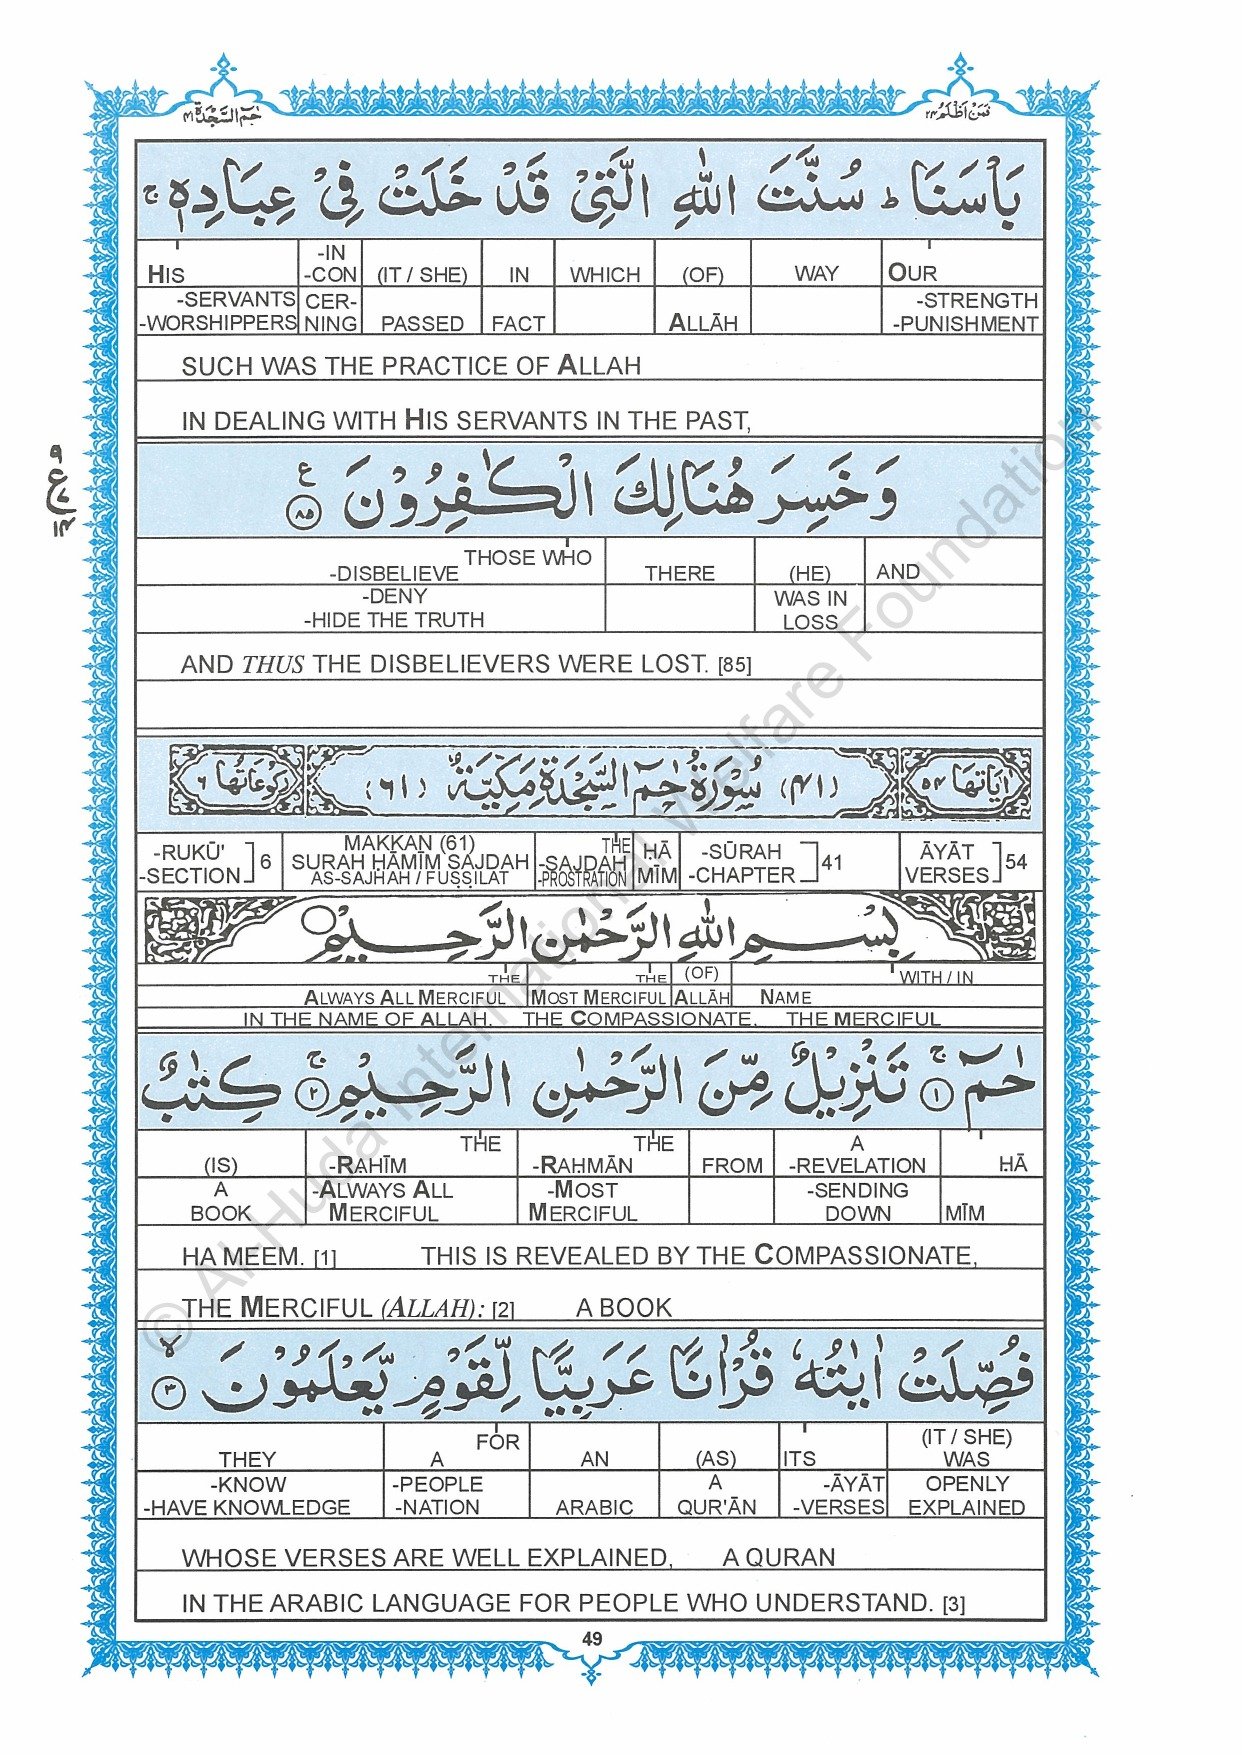 حٰمٓ السَّجْدَة ٤١
فَمَنْ اَظْلَمُ ٢٤
بَاْسَنَا ؕ سُنَّتَ اللّٰهِ الَّتِیْ قَدْ خَلَتْ فِیْ عِبَادِهٖ ۚ
HIS -IN -CON (IT / SHE) IN WHICH (OF) WAY OUR
-SERVANTS -WORSHIPPERS CER- NING PASSED FACT ALLĀH -STRENGTH -PUNISHMENT
SUCH WAS THE PRACTICE OF ALLAH
IN DEALING WITH HIS SERVANTS IN THE PAST,
وَ خَسِرَ هُنَالِكَ الْكٰفِرُوْنَ ﴿٨٥﴾ ع
٩
ع
١٣
THOSE WHO
-DISBELIEVE THERE (HE) AND
-DENY WAS IN
-HIDE THE TRUTH LOSS
AND THUS THE DISBELIEVERS WERE LOST. [85]
اٰيَاتُهَا ٥٤ (٤١) سُوْرَةُ حٰمٓ السَّجْدَةِ مَكِّيَّةٌ (٦١) رُكُوْعَاتُهَا ٦
-RUKŪ' -SECTION ] 6 MAKKAN (61) SURAH ḤĀMĪM SAJDAH AS-SAJHAH / FUṢṢILAT THE -SAJDAH -PROSTRATION ḤĀ MĪM -SŪRAH -CHAPTER ] 41 ĀYĀT VERSES ] 54
بِسْمِ اللّٰهِ الرَّحْمٰنِ الرَّحِيْمِ
THE THE (OF) WITH / IN
ALWAYS ALL MERCIFUL MOST MERCIFUL ALLĀH NAME
IN THE NAME OF ALLAH, THE COMPASSIONATE, THE MERCIFUL
حٰمٓ ﴿١﴾ ۚ تَنْزِيْلٌ مِّنَ الرَّحْمٰنِ الرَّحِيْمِ ﴿٢﴾ ۚ كِتٰبٌ
THE THE A
(IS) -RAHĪM -RAHMĀN FROM -REVELATION ḤĀ
A -ALWAYS ALL -MOST -SENDING
BOOK MERCIFUL MERCIFUL DOWN MĪM
HA MEEM. [1] THIS IS REVEALED BY THE COMPASSIONATE,
THE MERCIFUL (ALLAH): [2] A BOOK
فُصِّلَتْ اٰيٰتُهٗ قُرْاٰنًا عَرَبِيًّا لِّقَوْمٍ يَّعْلَمُوْنَ ﴿٣﴾ ۙ
FOR (IT / SHE)
THEY A AN (AS) ITS WAS
-KNOW -PEOPLE A -ĀYĀT OPENLY
-HAVE KNOWLEDGE -NATION ARABIC QUR'ĀN -VERSES EXPLAINED
WHOSE VERSES ARE WELL EXPLAINED, A QURAN
IN THE ARABIC LANGUAGE FOR PEOPLE WHO UNDERSTAND. [3]
49
© Al-Huda International Welfare Foundation